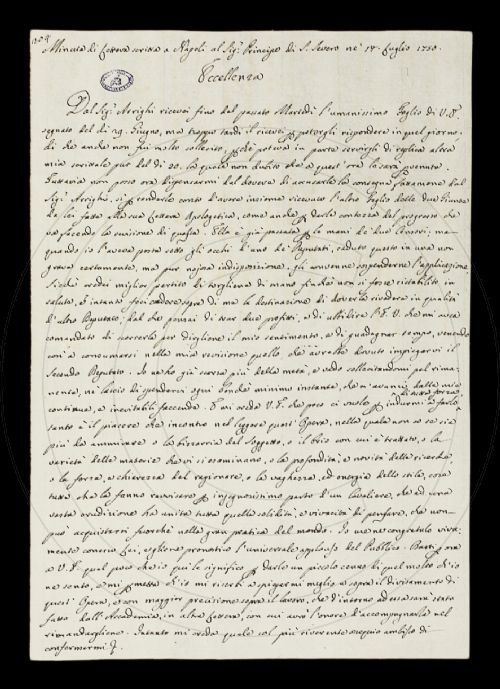 Minuta di Lettera scritta a Napoli al Sigr. Principe di S. Severo ne' 18 Luglio 1750.
Eccellenza
Dal Sigr. Arrighi ricevei fino dal passato Martedì l'umanissimo Foglio di V. E.
segnato del dì 29. Giugno, ma troppo tardi il ricevei per potergli rispondere in quel giorno,
di che anche non fui molto sollecito, perchè poteva in parte servirgli di replica altra
mia scrittale pur del dì 20. la quale non dubito che a quest'ora le sarà pervenuta.
Tuttavia non posso ora dispensarmi dal dovere di accusarle la consegna fattamene dal
Sigr. Arrighi, e renderle conto d'avere insieme ricevuto l'altro Foglio delle due Giunte
da lei fatte alla sua Lettera Apologetica, come anche per darle contezza del progresso che
va facendo la revisione di questa. Ella è già passata per le mani de' due Censori, ma
quando io l'aveva posta sotto gli occhi d'uno de' Deputati, caduto questo in una non
grave certamente, ma pur nojosa indisposizione, gli convenne sospenderne l'applicazione.
Sicchè credei miglior partito di togliergliela di mano finchè non si fosse ristabilito in
salute, e intanto far cadere sopra di me la destinazione di doverla rivedere in qualità
d'altro Deputato: dal che pensai di trar due profitti, e di ubbidire l'E. V. che mi aveva
comandato di scorrerla per dirgliene il mio sentimento, e di guadagnar tempo, venendo
così a consumarsi nella mia revisione quello, che avrebbe dovuto impiegarvi il
Secondo Deputato. Io ne ho già scorsa più della metà, e vado sollecitandomi pel rima-
nente, nè lascio di spendervi ogni benchè minimo instante, che m'avanzi dalle mie
continue, e inevitabili faccende. E mi creda V. E. che poco ci vuole per indurmi a farlo
tanto è il piacere che incontro nel leggere quest'Opera, nella quale non so se sia
più da ammirare o la bizzarria del Soggetto, o il brio con cui è trattato, o la
varietà delle materie che vi si esaminano, o la profondità, e novità delle ricerche
o la forza, e chiarezza del ragionare, o la vaghezza, ed energia dello stile, cose
tutte che la fanno ravvisare per ingegnosissimo parto d'un Cavaliere, che ad una
vasta erudizione ha unita tutta quella solidità, e vivacità di pensare, che non
può acquistarsi fuorchè nella gran pratica del mondo. Io me ne congratulo viva-
mente con esso Lei, e gliene pronostico l'universale applauso del Pubblico. Basti per ora
a V. E. quel poco che io qui le significo per darle un piccolo cenno di quel molto ch'io
ne sento, e mi permetta ch'io mi riserbi a spiegarmi meglio e sopra il divisamento di
quest'Opera, e con maggior precisione sopra il lavoro, che d'intorno ad essa sarà stato
fatto dall'Accademia, in altra Lettera, con cui avrò l'onore d'accompagnarla nel
rimandargliene. Intanto mi creda quale col più riverente ossequio ambisco di
confermarmi